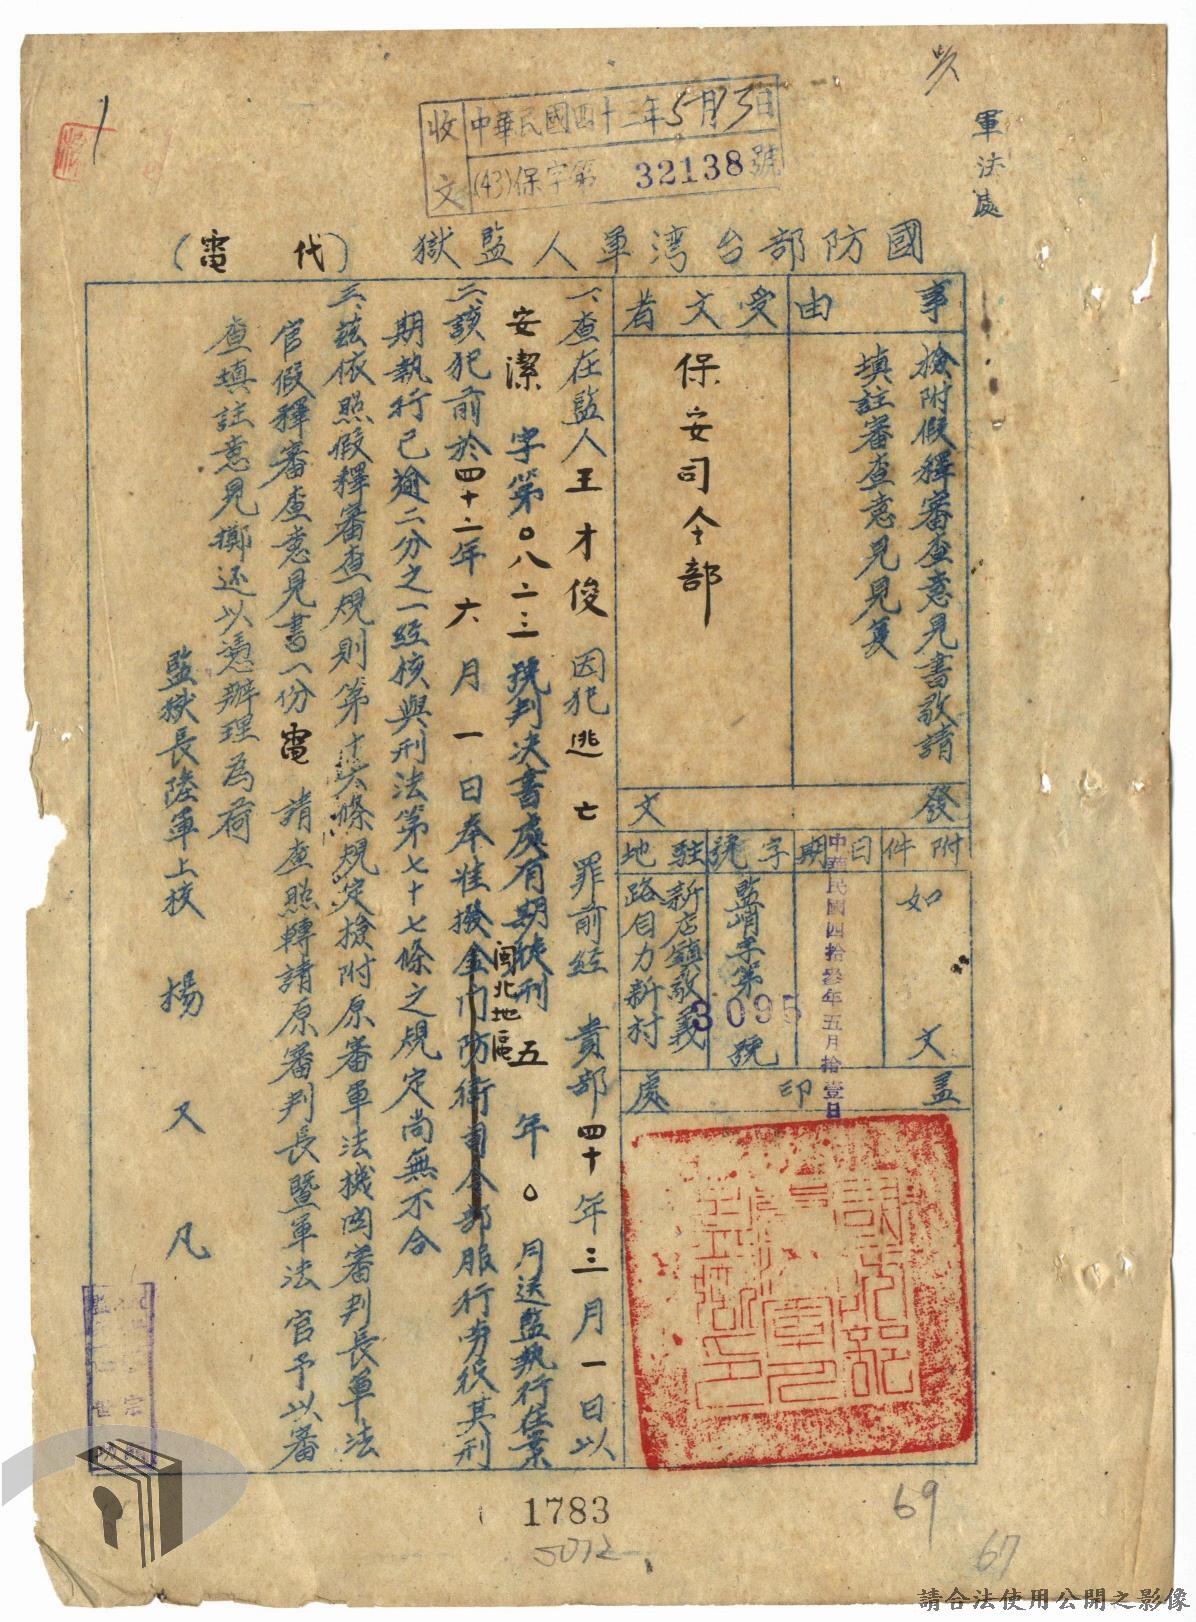 軍法處
收文
中華民國四十三年5月13日
(43)保字第 32138號
國防部台湾軍人監獄(代電)
事由
檢附假釋審查意見書敬請
填註審查意見見复
受文者
保安司令部
發文
附件
如文
日期
中華民國四拾叁年五月拾壹日
字號
監甹字第3095號
駐地
新店鎮敬義
路自力新村
盖印處
一、查在監人王才俊因犯逃亡罪前經 貴部四十年三月一日以
安潔字第〇八二三號判決書處有期徒刑五年〇月送監執行在案
二、該犯前於四十二年六月一日奉准撥金门防衛司令部服行劳役其刑
閩北地區
期執行已逾二分之一經核與刑法第七十七條之規定尚無不合
三、茲依照假釋審查規則第十六條規定檢附原審軍法機関審判長軍法
官假釋審查意見書一份電 請查照轉請原審判長暨軍法官予以審
查填註意見擲还以憑辦理為荷
監獄長陸軍上校 楊又凡
1783
5072
69
67
請合法使用公開之影像